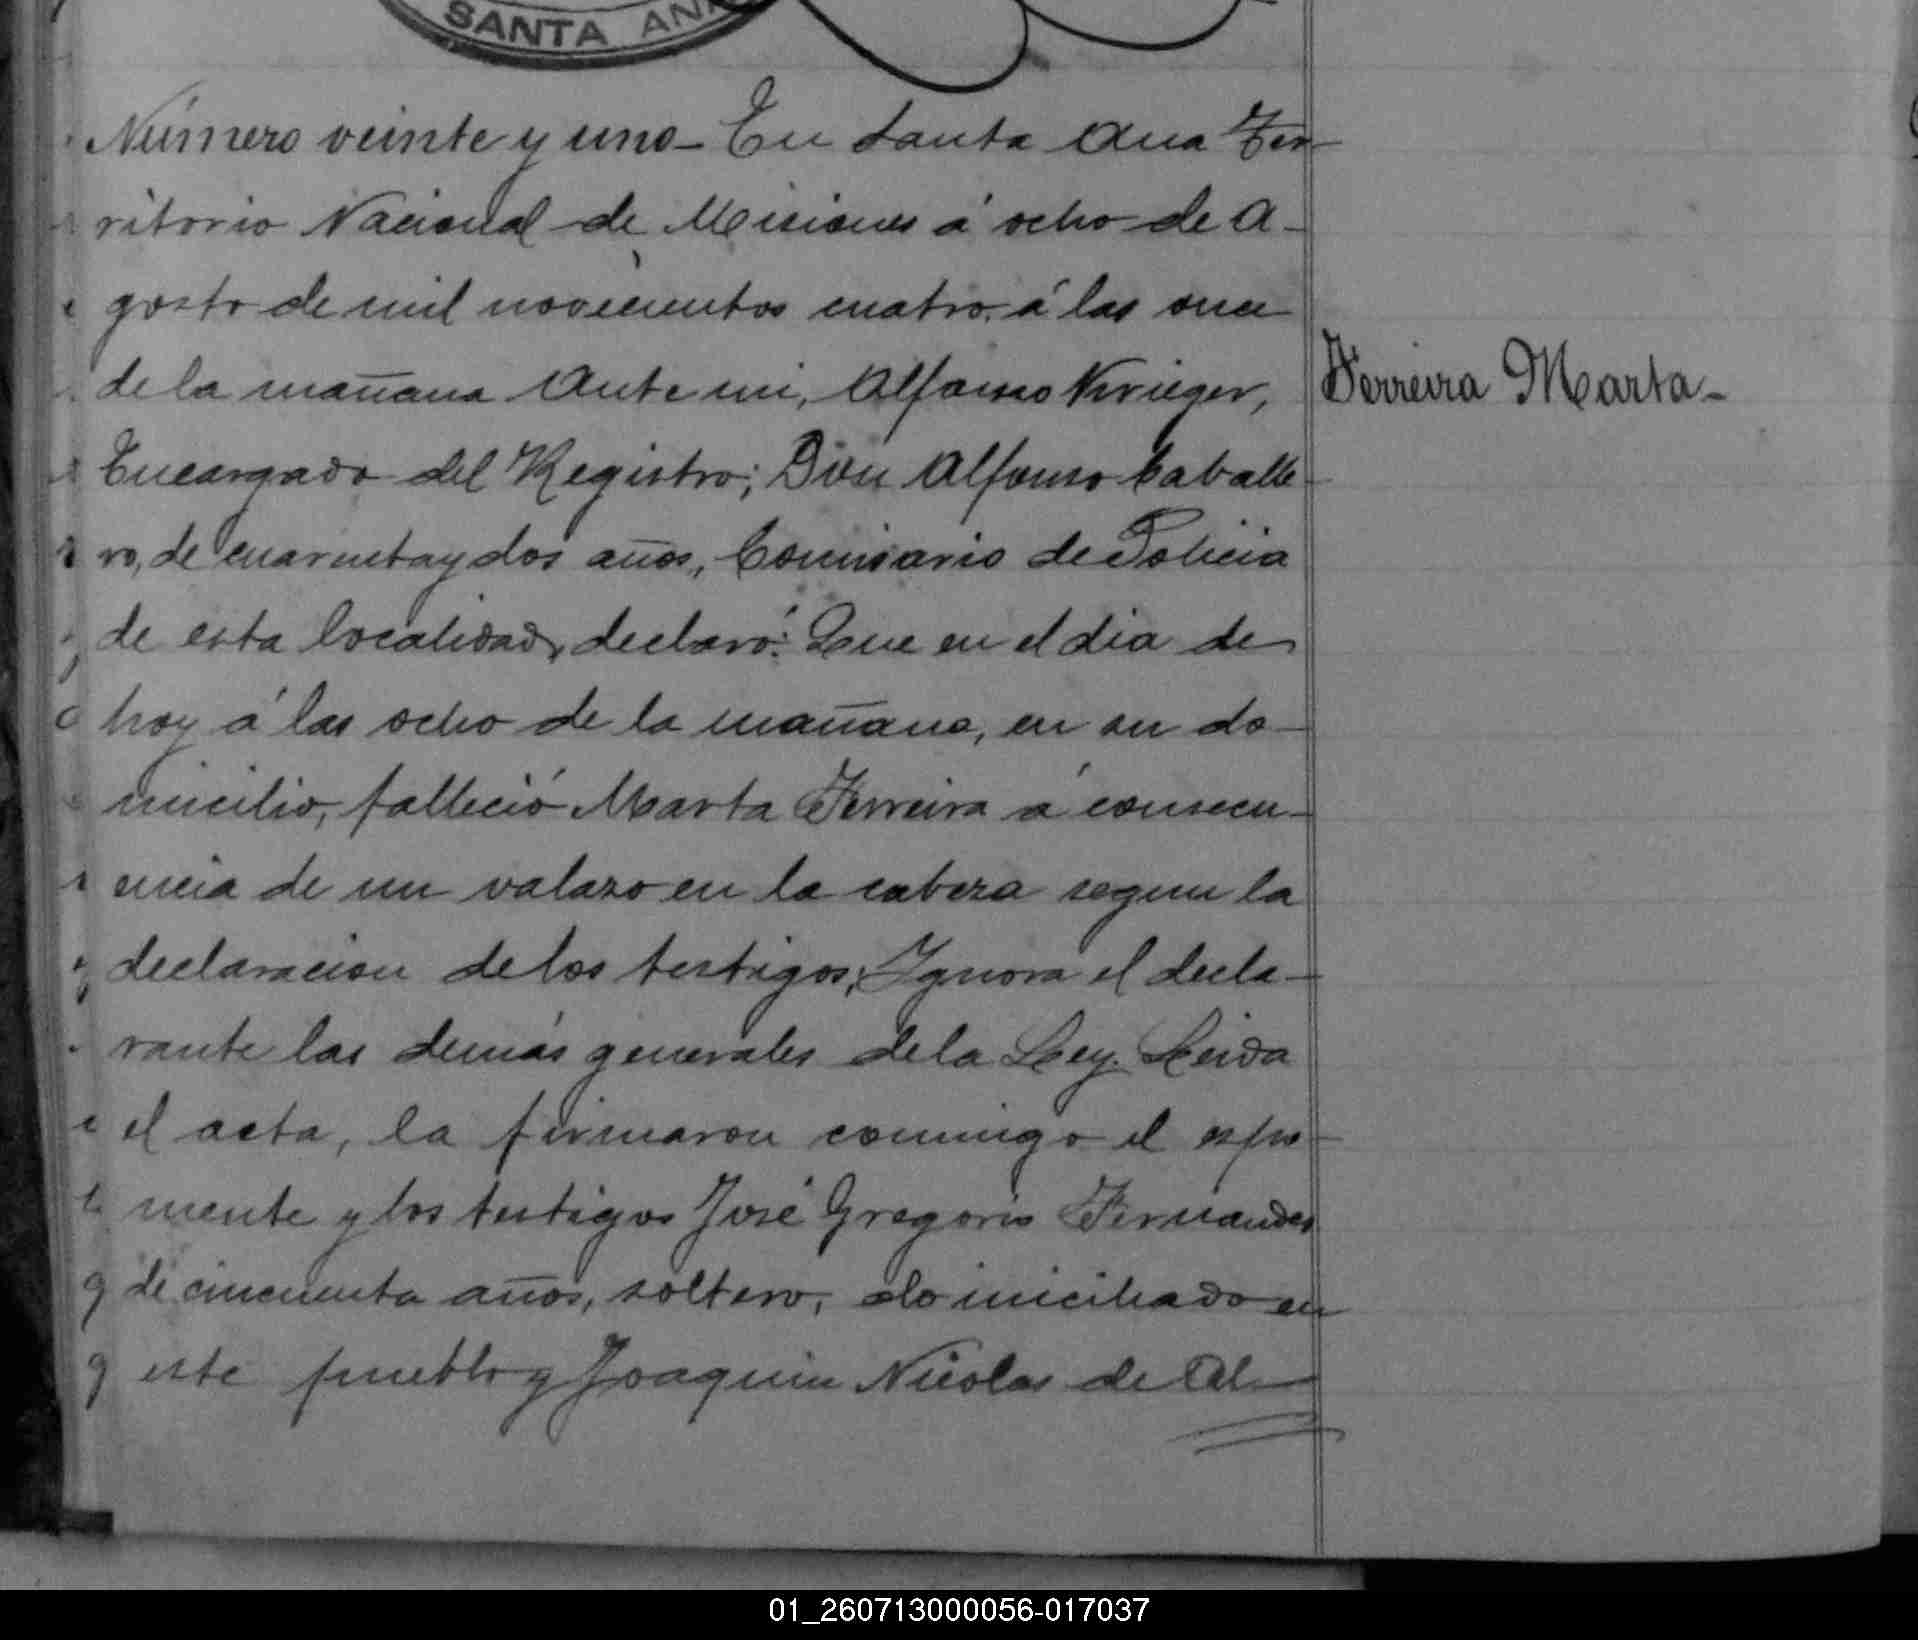 SANTA AN
Número veinte y uno - En Santa Ana Ter-
ritorio Nacional de Misiones á ocho de A-
gosto de mil novecientos cuatro á las once
de la mañana Ante mi, Alfonso Krieger,
Ferreira Marta -
Encargado del Registro; Don Alfonso Caballe-
ro, de cuarenta y dos años, Comisario de Policia
de esta localidad, declaró: Que en el dia de
hoy á las ocho de la mañana, en su do-
micilio, falleció Marta Ferreira á consecu-
encia de un valazo en la cabeza segun la
declaracion de los testigos; Ignora el decla-
rante las demás generales de la Ley. Leida
el acta, la firmaron conmigo el espo-
nente y los testigos José Gregorio Fernandes
de cincuenta años, soltero, domiciliado en
este pueblo y Joaquin Nicolas de Al-
01_260713000056-017037